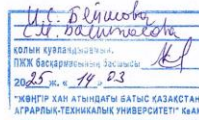 И.С. Бейшова
С.М. Башпакова
қолын куәландырамын.
ПЖЖ басқармасының басшысы
2025 ж. « 14 » 03
"ЖӘҢГІР ХАН АТЫНДАҒЫ БАТЫС ҚАЗАҚСТАН
АГРАРЛЫҚ-ТЕХНИКАЛЫҚ УНИВЕРСИТЕТІ" КеАҚ